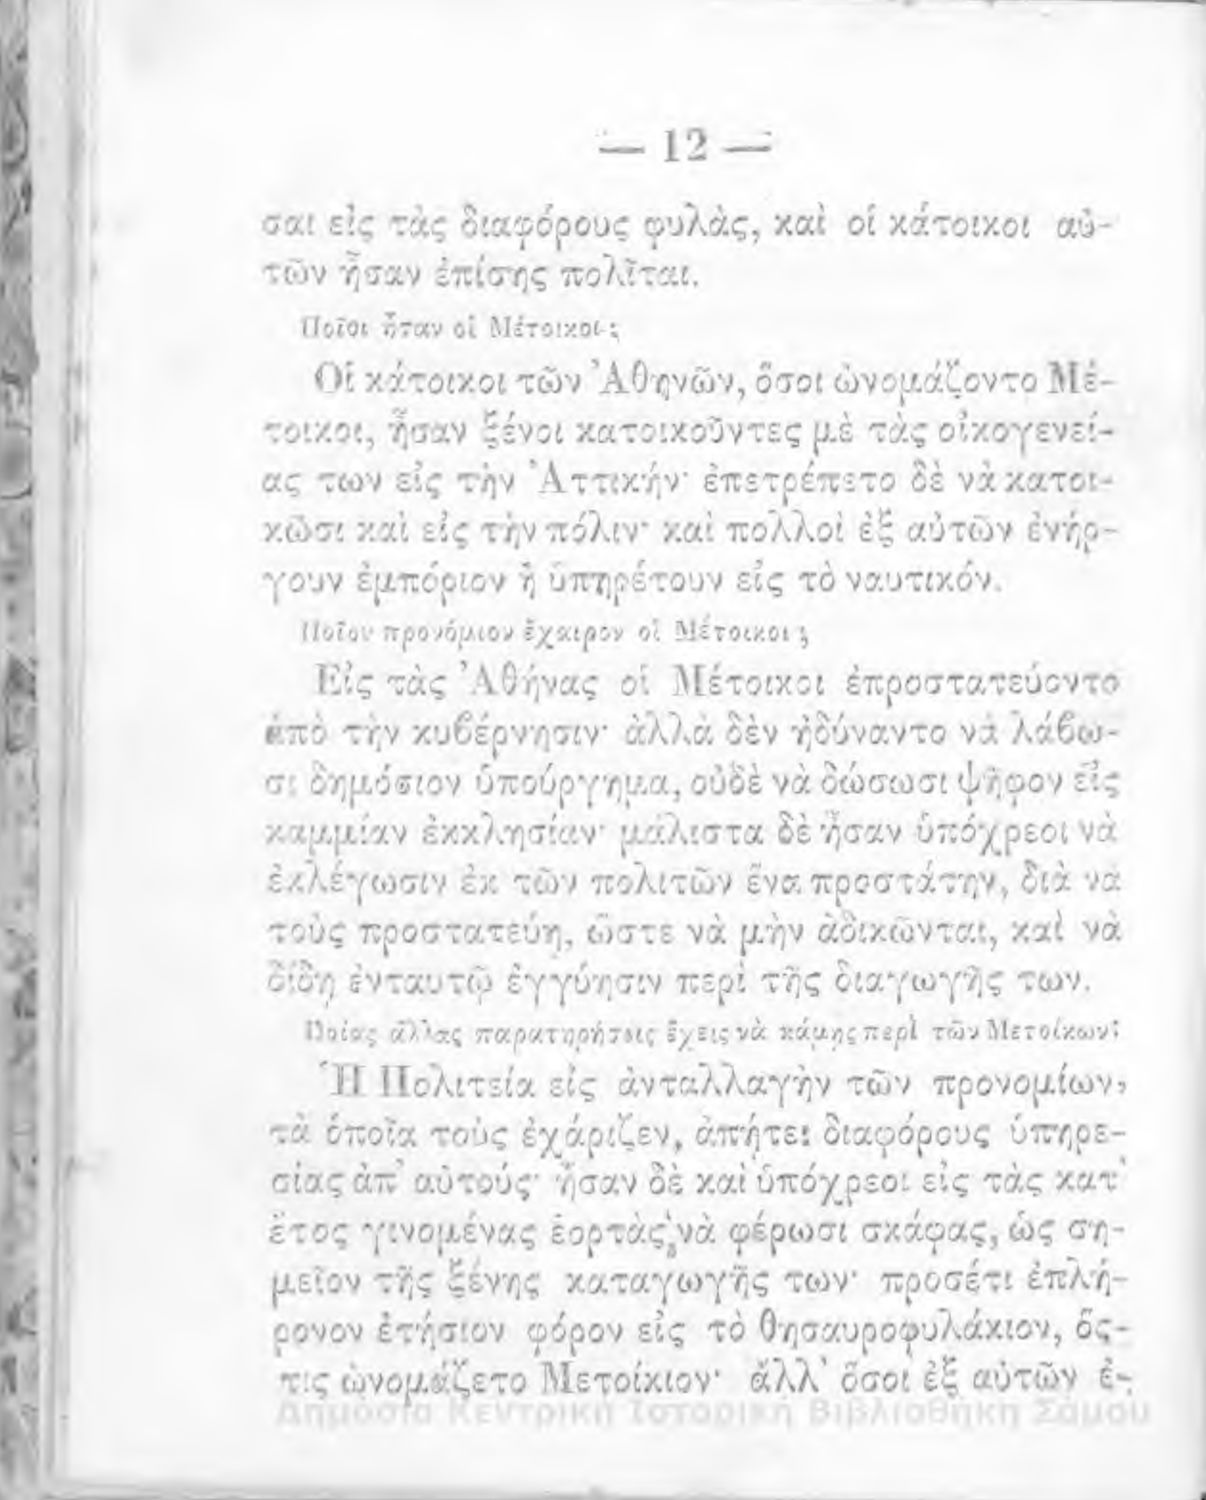 — 12 —
σαι εἰς τὰς διαφόρους φυλὰς, καὶ οἱ κάτοικοι αὐ-
τῶν ἦσαν ἐπίσης πολῖται.
Ποῖοι ἦταν οἱ Μέτοικοι;
Οἱ κάτοικοι τῶν Ἀθηνῶν, ὅσοι ὠνομάζοντο Μέ-
τοικοι, ἦσαν ξένοι κατοικοῦντες μὲ τὰς οἰκογενεί-
ας των εἰς τὴν Ἀττικήν· ἐπετρέπετο δὲ νὰ κατοι-
κῶσι καὶ εἰς τὴν πόλιν· καὶ πολλοὶ ἐξ αὐτῶν ἐνήρ-
γουν ἐμπόριον ἢ ὑπηρέτουν εἰς τὸ ναυτικόν.
Ποῖον προνόμιον ἔχαιρον οἱ Μέτοικοι;
Εἰς τὰς Ἀθήνας οἱ Μέτοικοι ἐπροστατεύοντο
ἀπὸ τὴν κυβέρνησιν· ἀλλὰ δὲν ἠδύναντο νὰ λάβω-
σι δημόσιον ὑπούργημα, οὐδὲ νὰ δώσωσι ψῆφον εἰς
καμμίαν ἐκκλησίαν· μάλιστα δὲ ἦσαν ὑπόχρεοι νὰ
ἐκλέγωσιν ἐκ τῶν πολιτῶν ἕνα προστάτην, διὰ νὰ
τοὺς προστατεύῃ, ὥστε νὰ μὴν ἀδικῶνται, καὶ νὰ
δίδῃ ἐνταυτῷ ἐγγύησιν περὶ τῆς διαγωγῆς των.
Ποίας ἄλλας παρατηρήσεις ἔχεις νὰ κάμῃς περὶ τῶν Μετοίκων;
Ἡ Πολιτεία εἰς ἀνταλλαγὴν τῶν προνομίων,
τὰ ὁποῖα τοὺς ἐχάριζεν, ἀπήτει διαφόρους ὑπηρε-
σίας ἀπ' αὐτούς· ἦσαν δὲ καὶ ὑπόχρεοι εἰς τὰς κατ'
ἔτος γινομένας ἑορτὰς νὰ φέρωσι σκάφας, ὡς ση-
μεῖον τῆς ξένης καταγωγῆς των· προσέτι ἐπλή-
ρονον ἐτήσιον φόρον εἰς τὸ θησαυροφυλάκιον, ὅς-
τις ὠνομάζετο Μετοίκιον· ἄλλ' ὅσοι ἐξ αὐτῶν ἐ-
Δημόσια Κεντρική Ιστορική Βιβλιοθήκη Σάμου